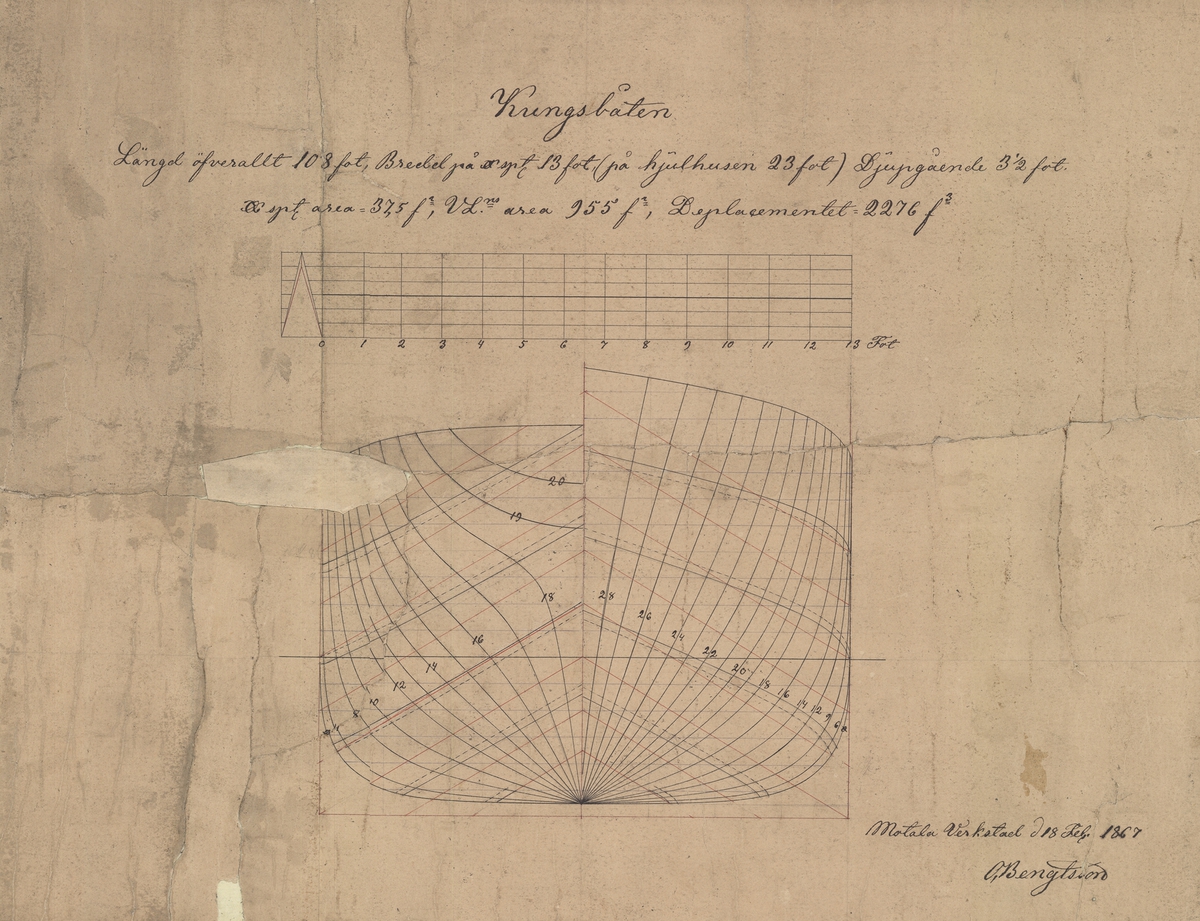 Kungsbåten
Längd öfverallt 108 fot, Bredd på ⌀ spt. 13 fot (på hjulhusen 23 fot) Djupgående 3½ fot.
⌀ spt area = 37,5 f², VL.ns area 955 f², Deplacementet = 2276 f³
0 1 2 3 4 5 6 7 8 9 10 11 12 13 Fot
20
19
18 28
16 26
14 24
12 22
10 20
8 18
4 16
14 12 9 6
Motala Verkstad d 18 Feb. 1867
C, Bengtsson